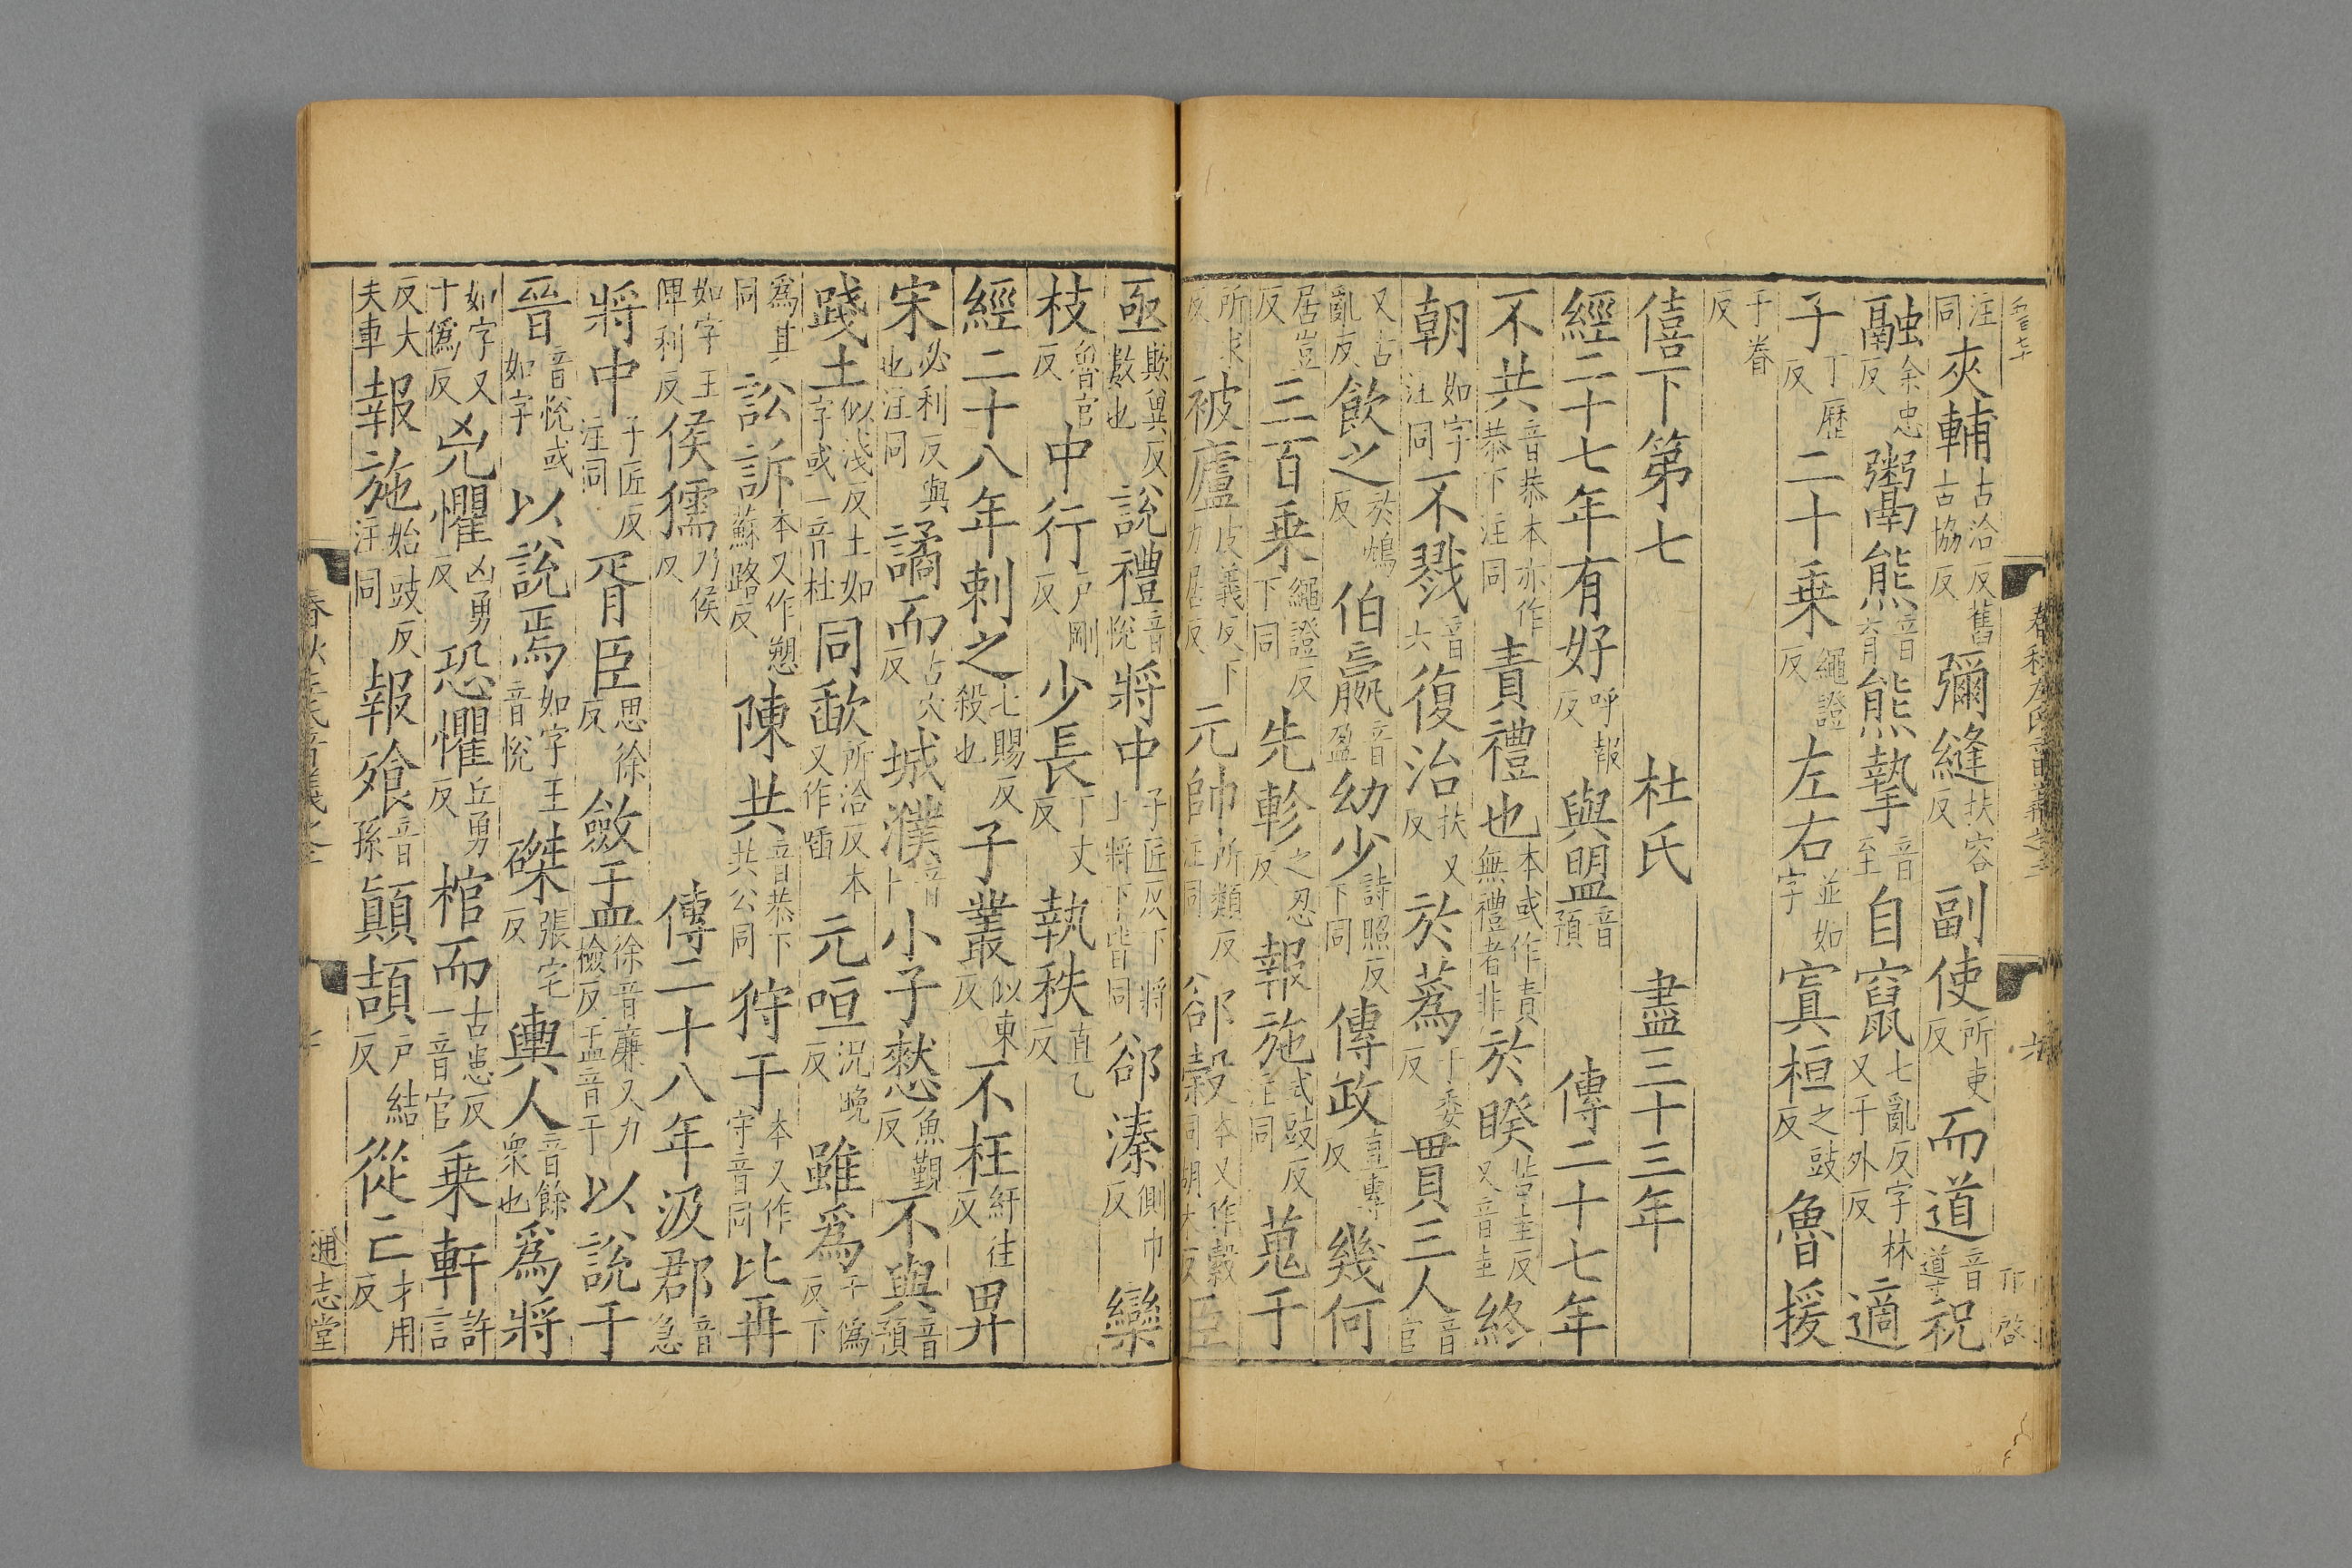 注同夾輔古洽反舊古協反彌縫扶容反副使所吏反而道音導祝
融余忠反鬻熊音育熊摯音至自竄七亂反字林又千外反適
子丁歷反二十乗繩證反左右並如字寘桓之豉反魯援
于眷反
僖下第七 杜氏 盡三十三年
經二十七年有好呼報反與盟音預 傳二十七年
不共音恭本亦作恭下注同責禮也本或作責無禮者非於睽苦圭反又音圭終
朝如字注同不戮音六復治扶又反於蒍于委反貫三人音官
又古亂反飲之於鴆反伯嬴音盈幼少詩照反下同傳政直專反幾何
居豈反三百乗繩證反下同先軫之忍反報施式豉反注同蒐于
所求反被廬皮義反下力居反元帥所類反注同郤縠本又作縠同胡木反臣
亟欺冀反數也說禮音悅將中子匠反下將上將下皆同郤溱側巾反欒
枝魯官反中行戶剛反少長丁丈反執秩直乙反
經二十八年刺之七賜反殺也子叢似東反不枉紆往反畀
宋必利反與也注同譎而古穴反城濮音卜小子憖魚覲反不與音預
踐土似淺反土如字或一音杜同歃所洽反本又作㰱元咺況晚反雖爲于僞反下
爲其同訟訴本又作愬蘇路反陳共音恭下共公同狩于本又作守音同比再
如字王俾利反侯獳乃侯反 傳二十八年汲郡音急
將中子匠反注同胥臣思徐反斂盂徐音廉又力檢反盂音于以說于
晉音悅或如字以說焉如字王音悅磔張宅反輿人音餘眾也爲將
如字又于僞反兇懼凶勇反恐懼丘勇反棺而古患反一音官乘軒許言
反大夫車報施始豉反注同報飱音孫顛頡戶結反從亡才用反
通志堂